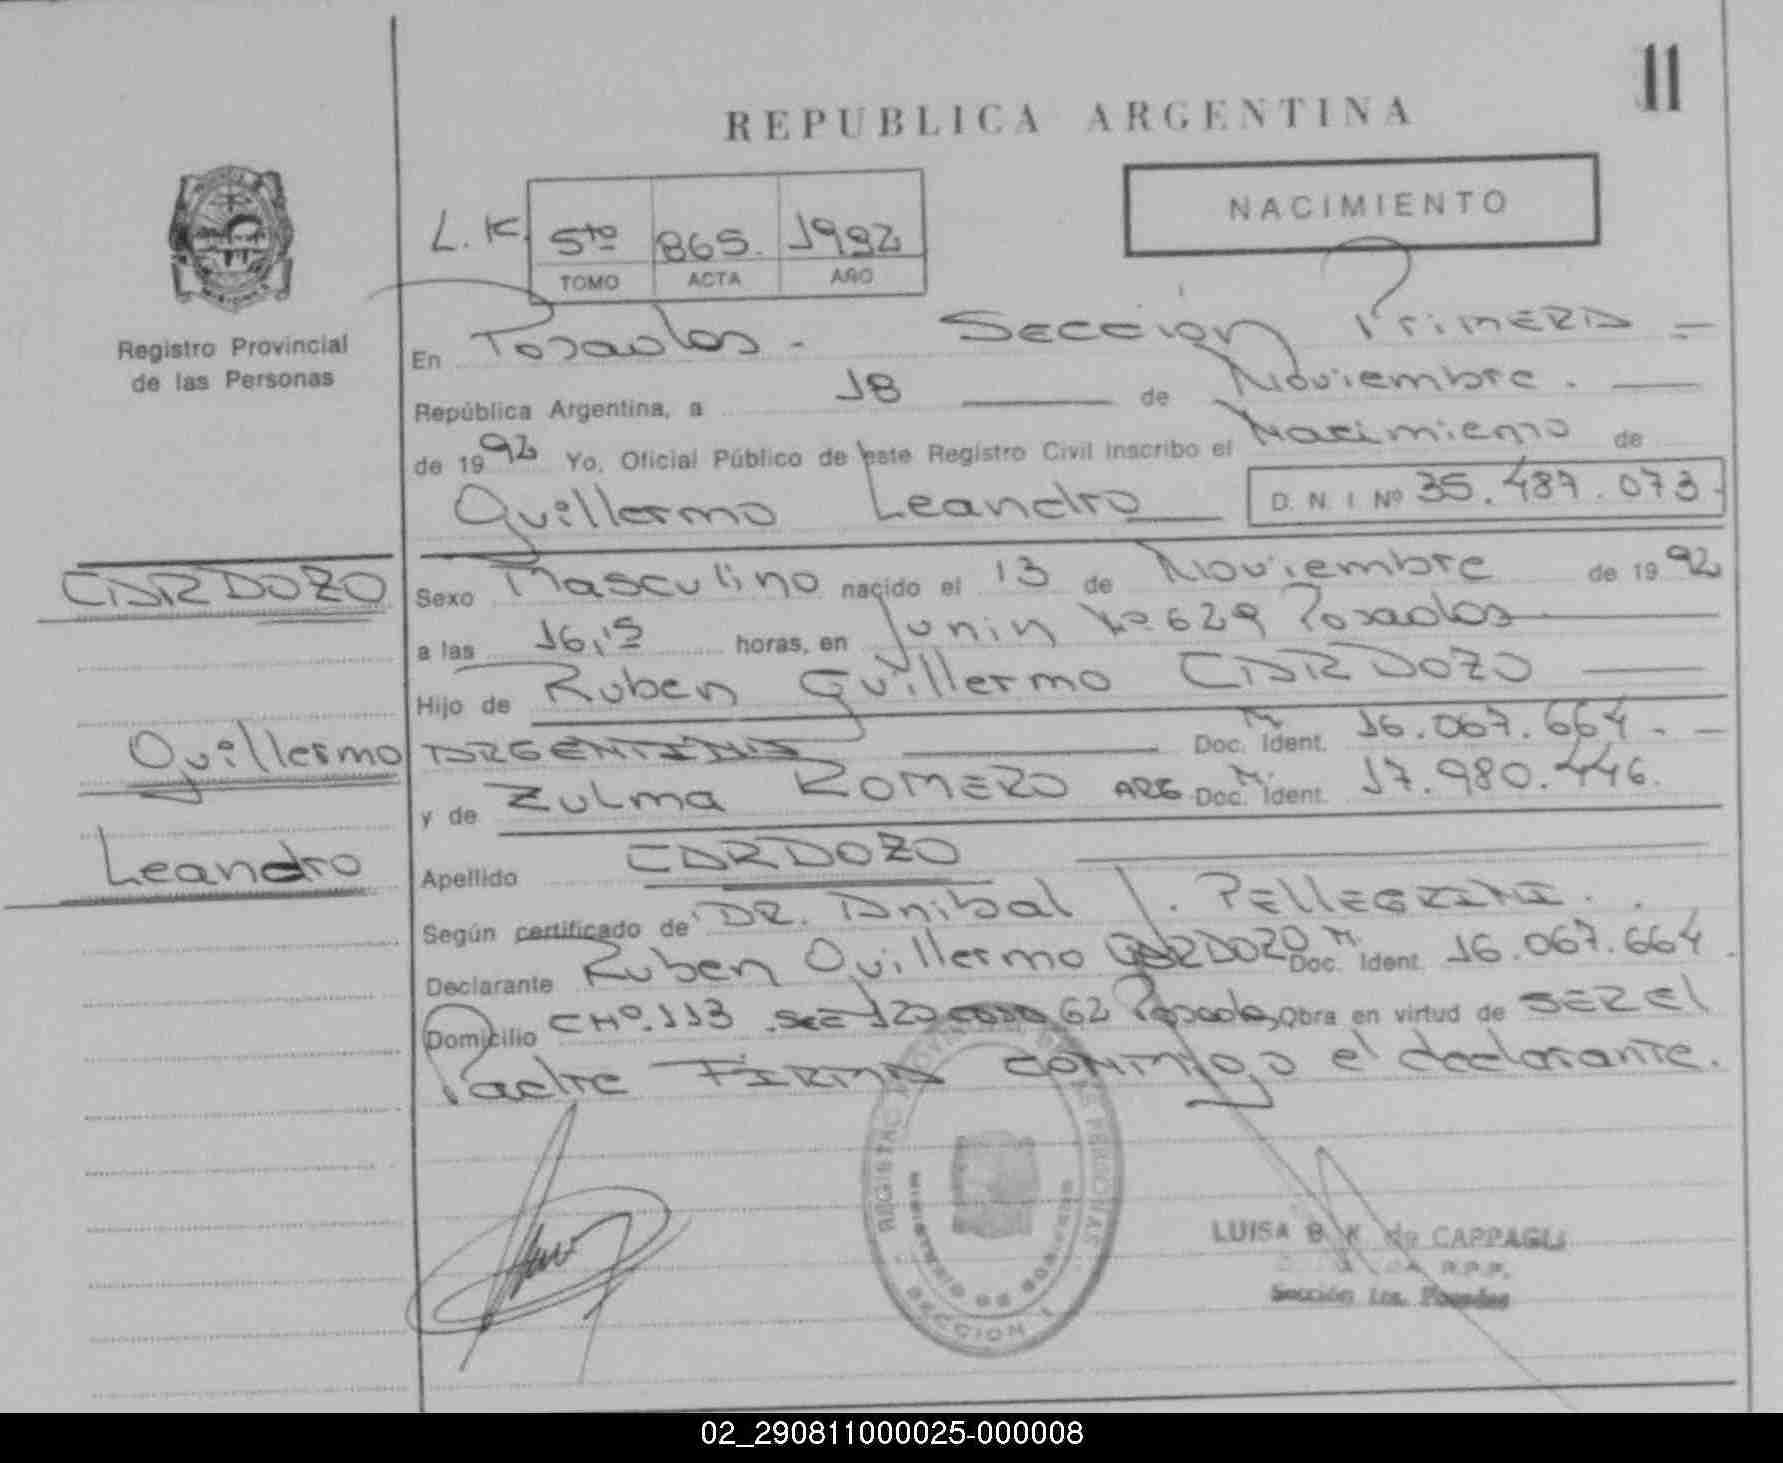 11
REPUBLICA ARGENTINA
NACIMIENTO
L. K. 5to 865. 1992
TOMO ACTA AÑO
Registro Provincial
de las Personas
En Posadas - Sección Primera =
República Argentina, a 18 de Noviembre.
de 1992 Yo, Oficial Público de este Registro Civil inscribo el Nacimiento de
Guillermo Leandro D. N. I Nº 35.487.073.
CARDOZO
Guillermo
Leandro
Sexo Masculino nacido el 13 de Noviembre de 1992
a las 16,15 horas, en Junin Nº 629 Posadas
Hijo de Ruben Guillermo CARDOZO
ARGENTINA Doc. Ident. M 16.067.664.-
y de Zulma ROMERO ARG Doc. Ident. M. 17.980.446.
Apellido CARDOZO
Según certificado de DR. Anibal J. PELLEGRINI.
Declarante Ruben Guillermo CARDOZO Doc. Ident. M. 16.067.664.
Domicilio CHº.113 62 Posadas, Obra en virtud de SER el
Padre FIRMA CONMIGO el declarante.
REGISTRO PROVINCIAL DE LAS PERSONAS
MINISTERIO DE GOBIERNO
SECCION 1
LUISA B. K. de CAPPAGLI
R.P.P.
Sección 1ra. Posadas
02_290811000025-000008